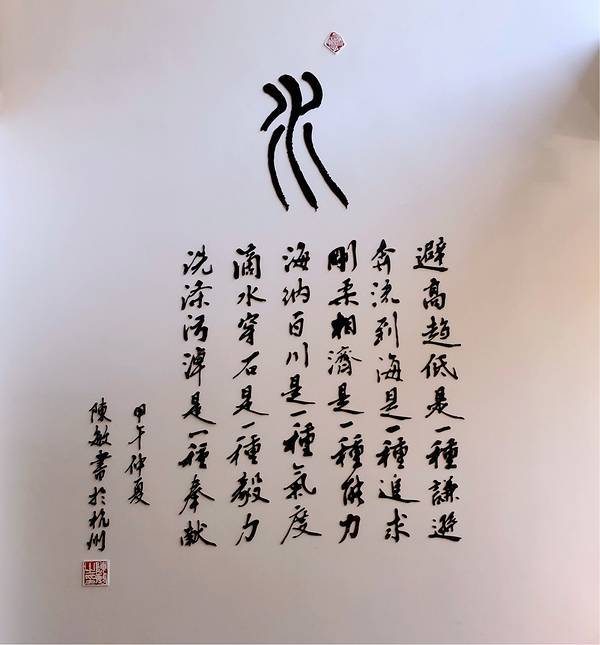 水
避高趋低是一種謙遜
奔流到海是一種追求
剛柔相濟是一種能力
海納百川是一種氣度
滴水穿石是一種毅力
洗滌污淖是一種奉献
甲午仲夏
陳敏書於杭州